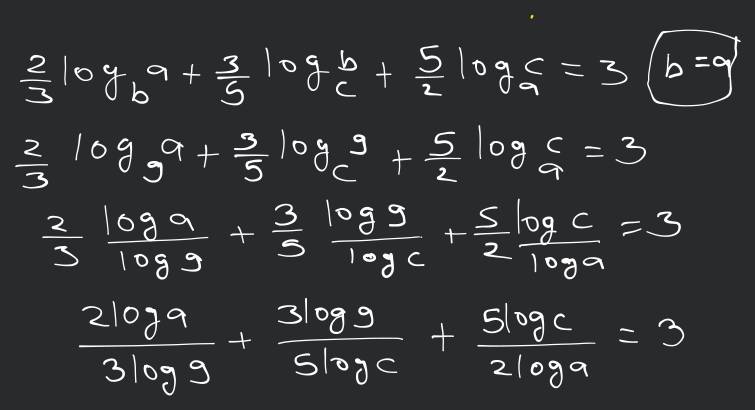 2/3 log_b a + 3/5 log_c b + 5/2 log_a c = 3 b = 9
2/3 log_9 a + 3/5 log_c 9 + 5/2 log_a c = 3
2/3 log a / log 9 + 3/5 log 9 / log c + 5/2 log c / log a = 3
2 log a / 3 log 9 + 3 log 9 / 5 log c + 5 log c / 2 log a = 3